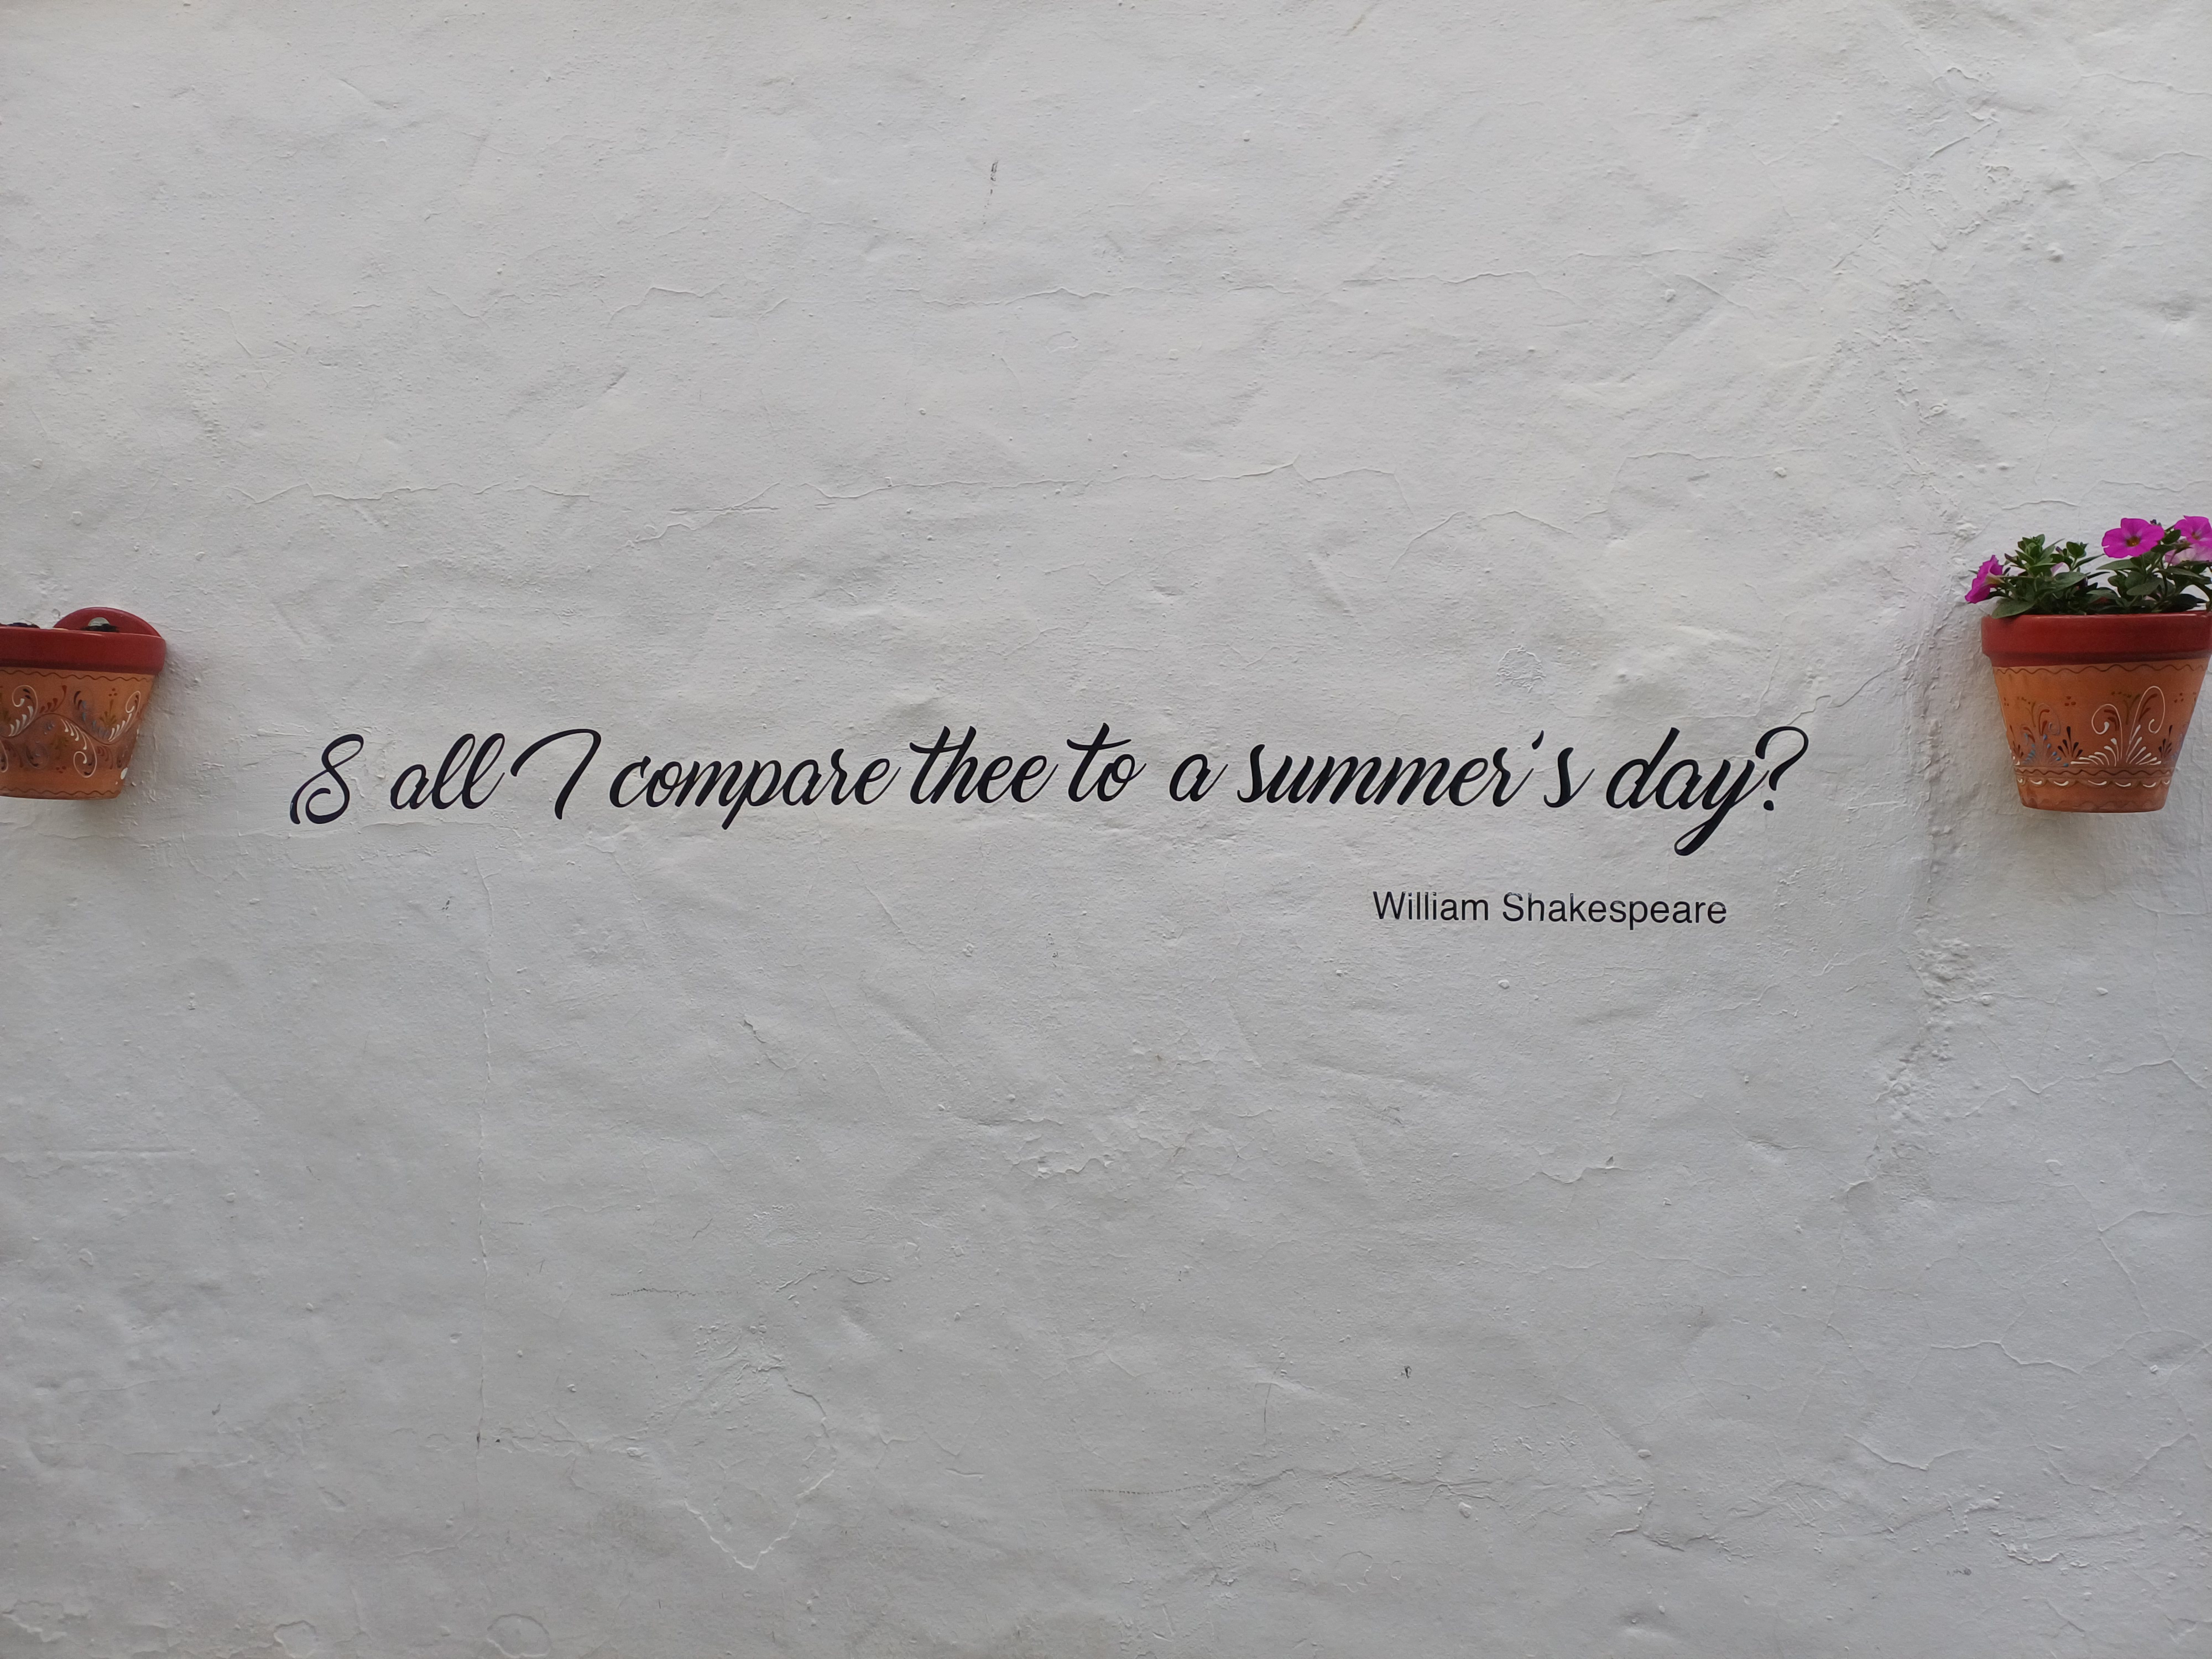 S all I compare thee to a summer's day?
William Shakespeare